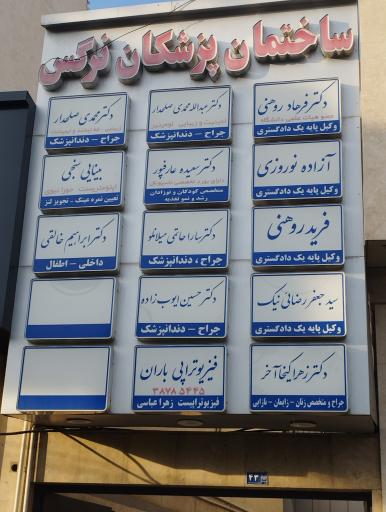 ساختمان پزشکان نرگس
دکتر فرهاد روهنی
عضو هیات علمی دانشگاه
وکیل پایه یک دادگستری
دکتر عبدالله محمدی صلحدار
جراح - دندانپزشک
دکتر محمدی صلحدار
جراح - دندانپزشک
آزاده نوروزی
وکیل پایه یک دادگستری
دکتر سعیده عارفپور
متخصص کودکان و نوزادان
رشد و نمو تغذیه
بینایی سنجی
تعیین نمره عینک - تجویز لنز
فرید روهنی
وکیل پایه یک دادگستری
دکتر سارا حاتمی میلانلو
جراح ، دندانپزشک
دکتر ابراهیم خالقی
داخلی - اطفال
سید جعفر رضائی نیک
وکیل پایه یک دادگستری
دکتر حسین ایوب زاده
جراح - دندانپزشک
دکتر زهرا کیخا آخر
جراح و متخصص زنان - زایمان - نازایی
فیزیوتراپی باران
۳۸۷۸ ۵۴۴۵
فیزیوتراپیست زهرا عباسی
۲۳